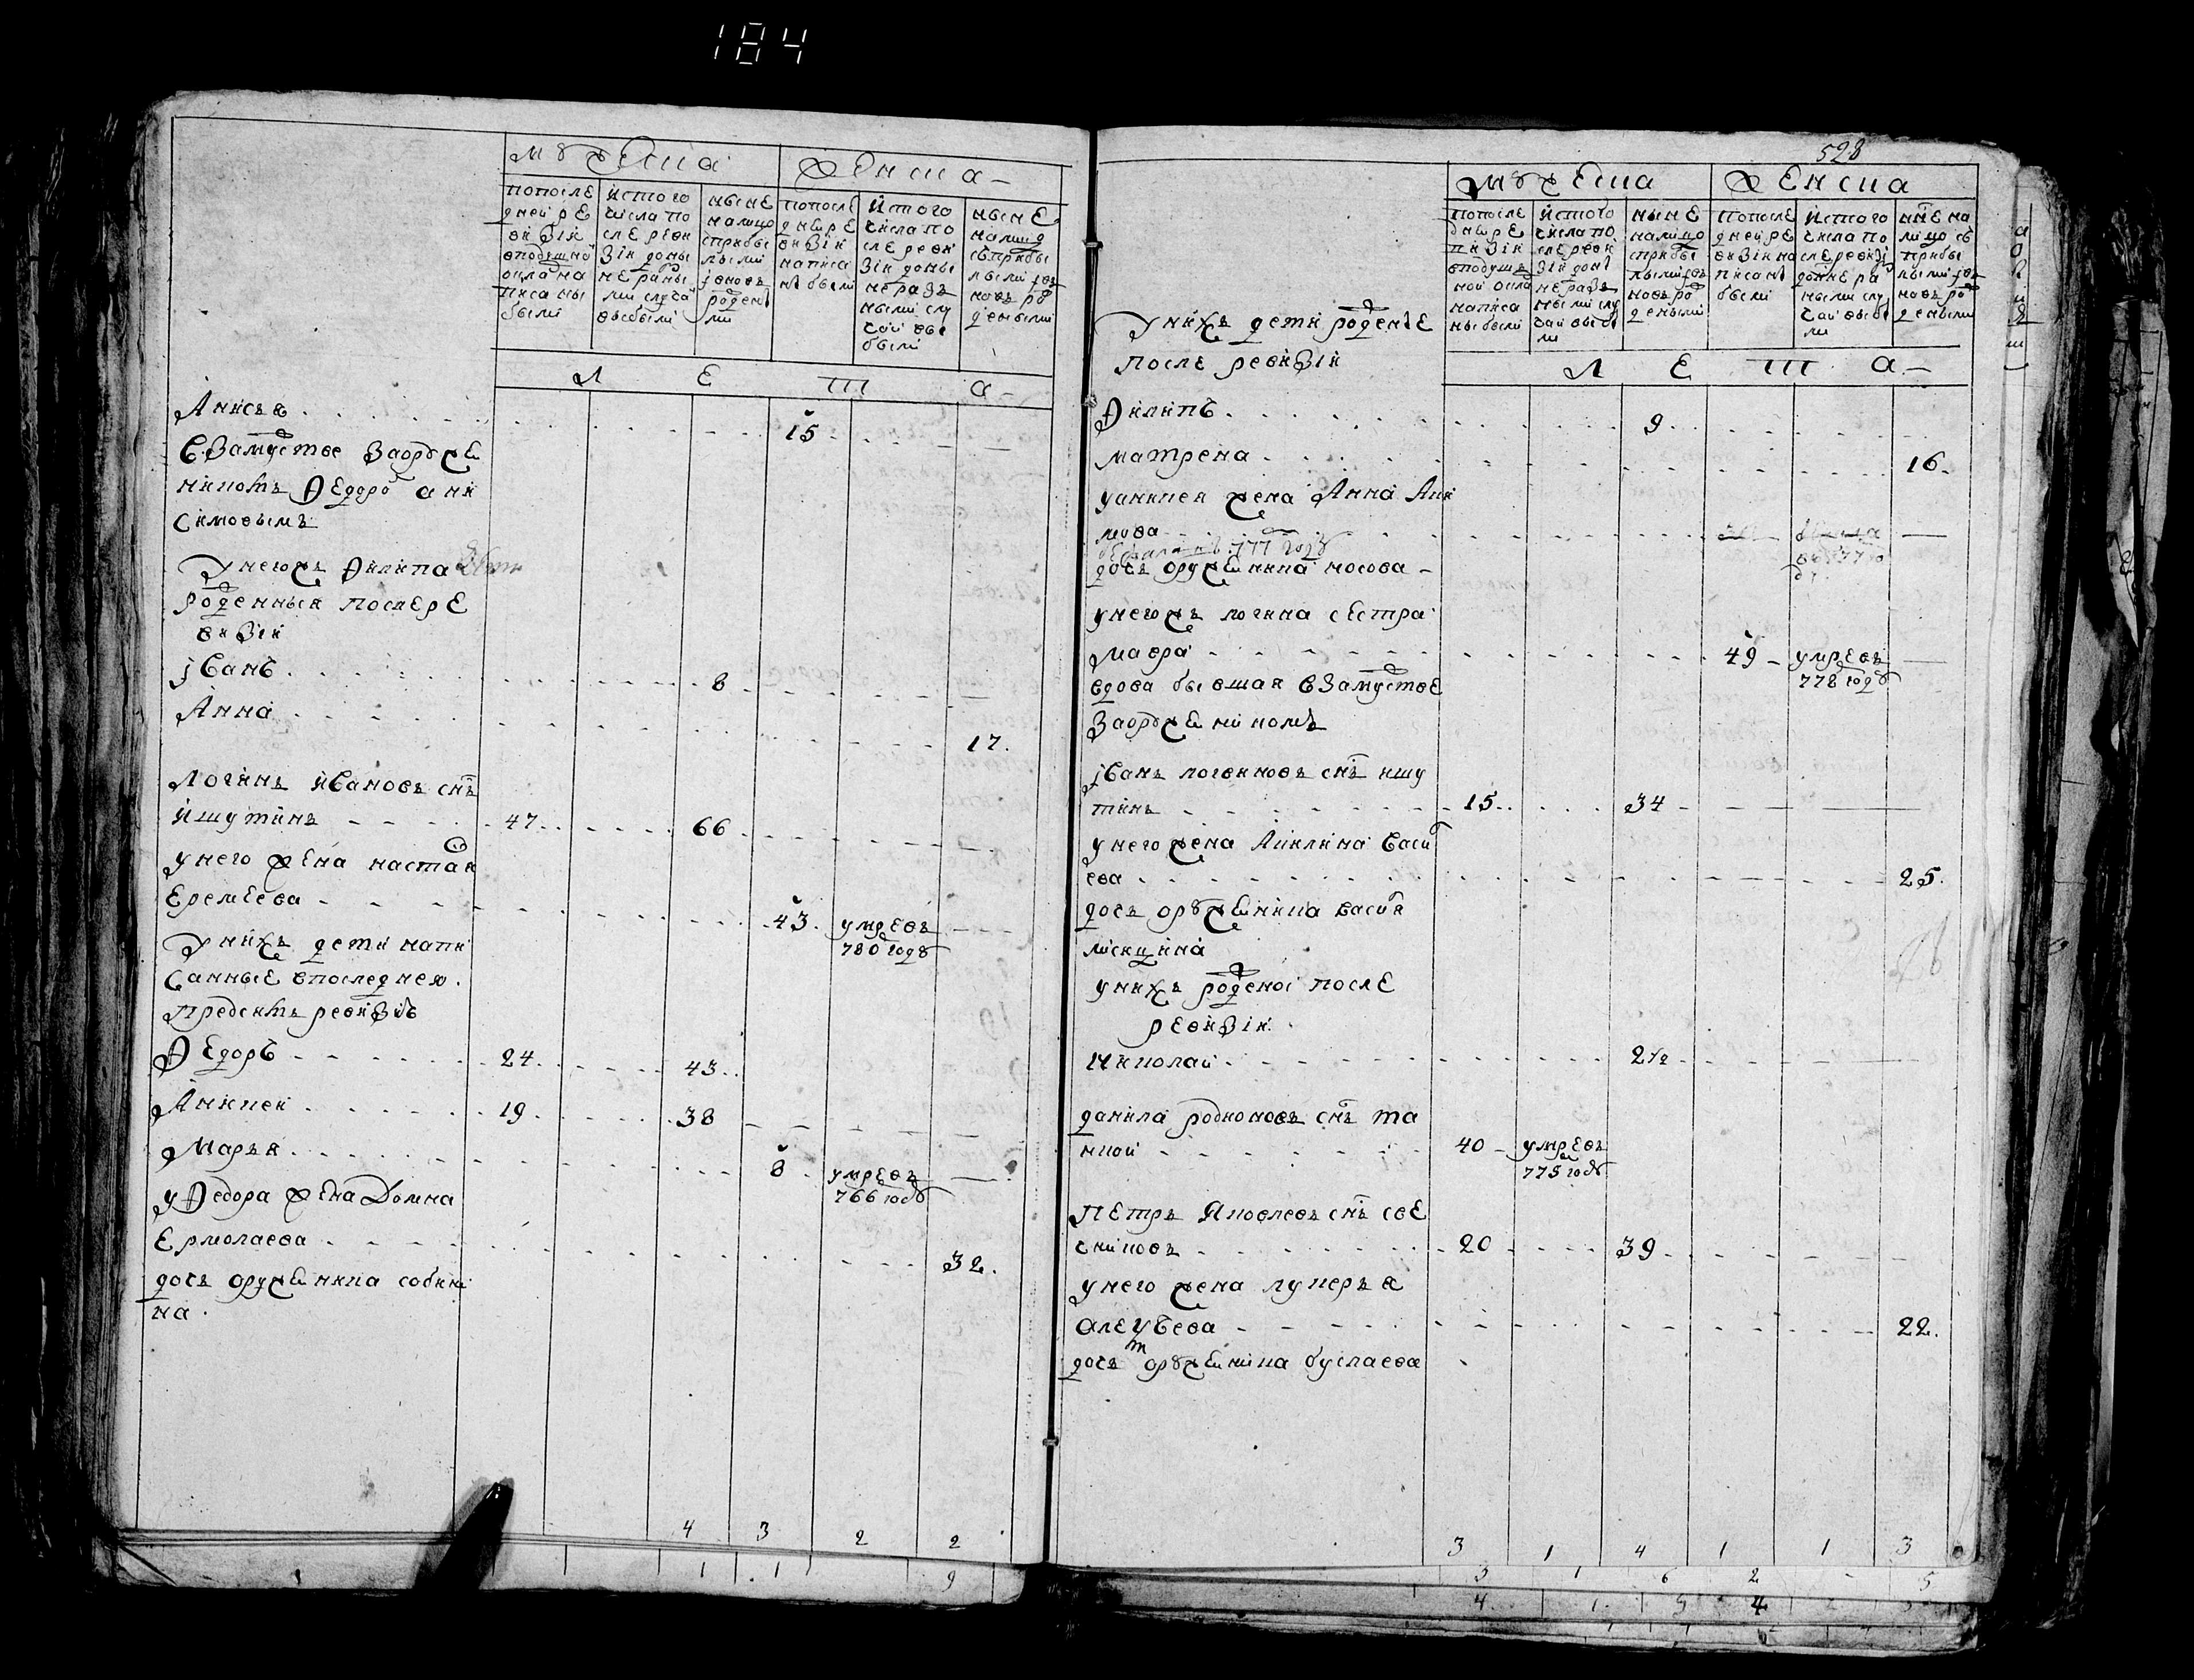 184
мужеска женска
попосле дней ре визiи вподушной окла на писаны были
истого числа по сле реви зiи до ны не разны ми случа выбыли
ныне налицо спрiбы лыми i вновь рожден ми
попосле дней ре визiи написа ны были
истого числа по сле реви зiи до ны не разъ ными слу чаи вы были
ныне налицо съ прибы лыми i въ новь ро денными
Л Е Т А
Анисья 15
Взамуство заоруже
никомъ Федоро ани
симовымъ
Унегожъ Филипа
рожденныя после ре
визiи
iванъ 8
Анна 17.
Логинъ ивановъ снъ
ишутинъ 47. 66
унего жена настая
Еремеева 43. умре въ
780 году
Унихъ дети напи
санные впоследнею
предсимъ ревизiю
Федоръ 24. 43.
Аникеи 19. 38
Марья 8 умре въ
766 году
уФедора жена Домна
Ермолаева 32.
дочь оружеиника собини
на.
4 3 2 2
1 1 9
528
мужеска женска
попосле дней ре визiи вподушъ ной окла написа ны были
истого числа по сле реви зiи до ны не разъ ными слу чаи выбы ли
ныне налицо спрiбы лыми i въ новь ро деными
попосле дней ре визiи на писаны были
истого числа по сле ревизi до нне ра ными слу чаи выбы ли
нне на лицо съ прибы лыми i въ новь ро деными
Л Е Т А
Унихъ дети рожденые
после ревизiи
Филипъ 9
матрена 16.
уаникея жена Анна Аки
мова
777 году
дочь оружеиника носова
унегожъ логина сестра
мавра 49 умре въ
778 году
вдова бывшая взамуство
заоружеиникомъ
iванъ логиновъ снъ ишу
тинъ 15. 34
унего жена Акилина васи
ева 25.
дочь оружеиника василя
лоскицина
унихъ рожденоi после
ревизiи
николаи 2 1/2
данила родионовъ снъ та
нкои 40 умре въ
775 году
Петръ Яковлевъ снъ све
чниковъ 20 39
унего жена лукерья
алеѯеева 22.
дочь оружеиника буслаева
3 1 4 1 1 3
3 1 6 2 5
4 1. 5 4 2